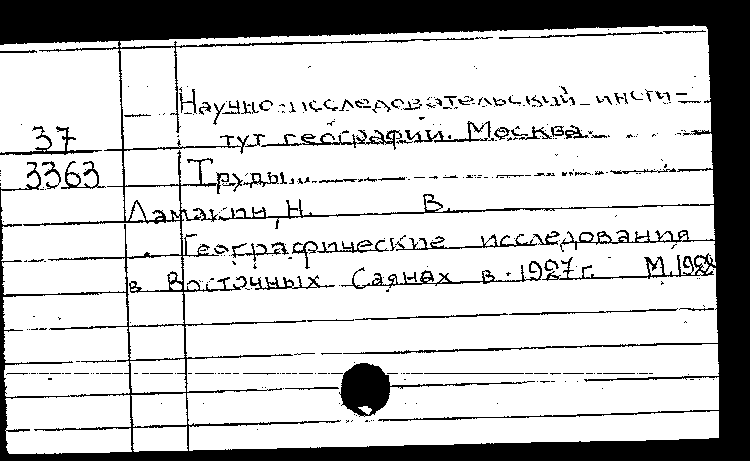 Научно-исследовательский инсти-
37 тут географии. Москва.
3363 Труды...
Ламакин, Н. В.
Географические исследования
в Восточных Саянах в 1927 г. М. 1928